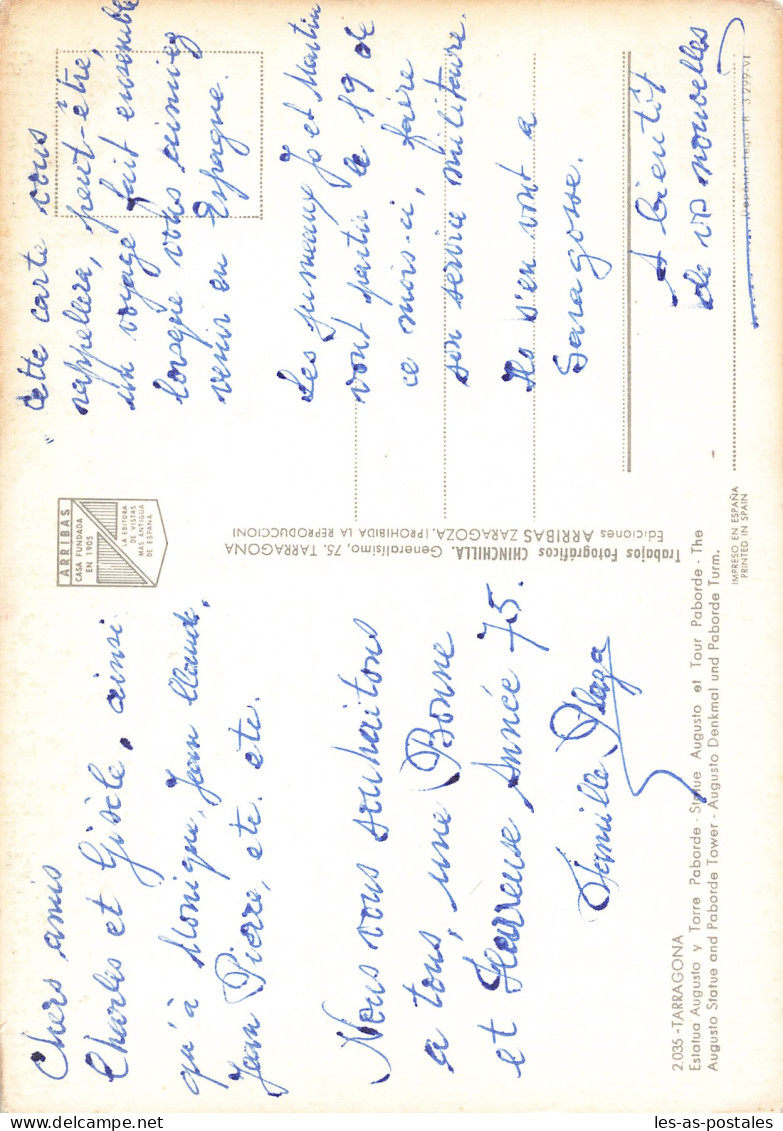 Chers amis
Charlis et Gisèle, ainsi
qu'à Monique, Jean Claude,
Jean Pierre, etc. etc.
Nous vous souhaitons
a tous, une Bonne
et Heureuse Année 75.
Famille Plaza
2.035 - TARRAGONA
Estatua Augusto y Torre Paborde - Statue Augusto et Tour Paborde - The
Augusto Statue and Paborde Tower - Augusto Denkmal und Paborde Turm.
ARRIBAS
CASA FUNDADA
EN 1905
LA EDITORA
DE VISTAS
MAS ANTIGUA
DE ESPAÑA
Trabajos Fotográficos CHINCHILLA. Generalísimo, 75. TARRAGONA
Ediciones ARRIBAS ZARAGOZA. (PROHIBIDA LA REPRODUCCION)
IMPRESO EN ESPAÑA
PRINTED IN SPAIN
Depósito legal B. 3.299-VI
Cette carte vous
rappellera, peut-être,
un voyage fait ensemble
lorsque vous
venir en Espagne.
Les jumeaux Jo et Martin
vont partir le 19 de
ce mois-ci, faire
son service militaire.
Ils s'en vont a
Saragosse.
A bientôt
de vos nouvelles
les-as-postales.com